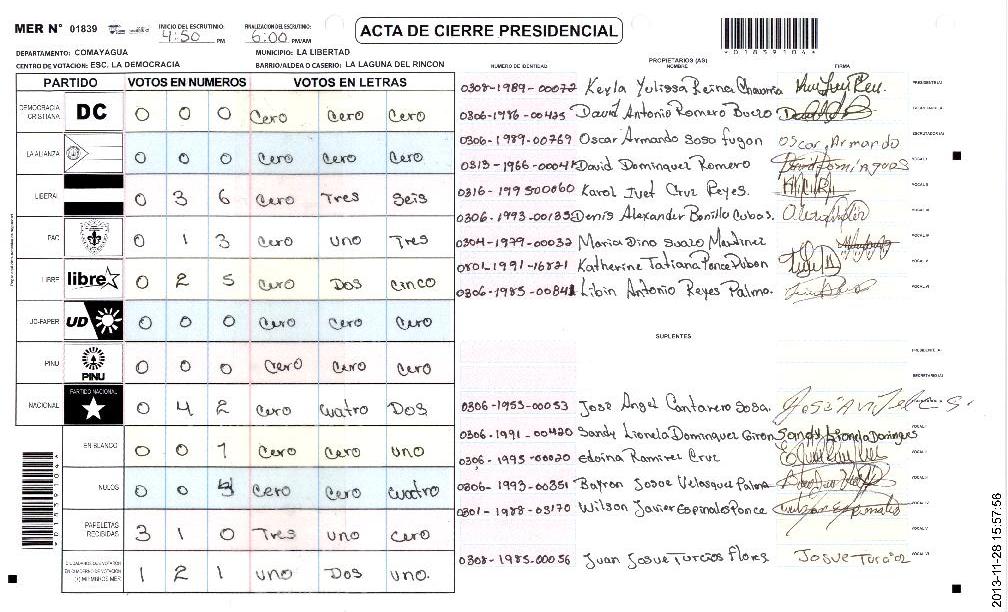 MER N° 01839 INICIO DEL ESCRUTINIO: 4:50 PM FINALIZACION DEL ESCRUTINIO: 6:00 PM/AM ACTA DE CIERRE PRESIDENCIAL
*01839104*
DEPARTAMENTO: COMAYAGUA MUNICIPIO: LA LIBERTAD
CENTRO DE VOTACION: ESC. LA DEMOCRACIA BARRIO/ALDEA O CASERIO: LA LAGUNA DEL RINCON
PARTIDO VOTOS EN NUMEROS VOTOS EN LETRAS
DEMOCRACIA CRISTIANA DC 0 0 0 Cero Cero Cero
LA ALIANZA 0 0 0 Cero Cero Cero
LIBERAL 0 3 6 Cero Tres Seis
PAC 0 1 3 Cero Uno Tres
LIBRE libre 0 2 5 Cero Dos Cinco
UD-FAPER UD 0 0 0 Cero Cero Cero
PINU PINU 0 0 0 Cero Cero Cero
NACIONAL PARTIDO NACIONAL 0 4 2 Cero Cuatro Dos
EN BLANCO 0 0 1 Cero Cero Uno
NULOS 0 0 Cero Cero Cuatro
PAPELETAS RECIBIDAS 3 1 0 Tres Uno Cero
(+) MIEMBROS MER 1 2 1 Uno Dos Uno.
NUMERO DE IDENTIDAD PROPIETARIOS (AS) NOMBRE FIRMA
0308-1989-00072 Keyla Yulissa Reina Chavarria PRESIDENTE(A)
0306-1986-00425 David Antonio Romero Buezo
0306-1989-00769 Oscar Armando Soso fugon Oscar Armando ESCRUTADOR(A)
0313-1966-00041 David Dominguez Romero VOCAL I
0316-199500060 Karol Ivet Cruz Reyes. VOCAL II
0306-1993-00135 Denis Alexander Bonilla Cubas. VOCAL III
0304-1979-00032 Maria Dina Suazo Martinez VOCAL IV
0801-1991-16821 Katherine Tatiana Ponce Pubon VOCAL V
0306-1985-00841 Libin Antonio Reyes Palma. VOCAL VI
SUPLENTES
PRESIDENTE (A)
SECRETARIO (A)
0306-1953-00053 Jose Angel Cantarero Sosa.
0306-1991-00420 Sandy Lionela Dominguez Giron Sandy Lionela Domingues VOCAL I
0306-1995-00020 Edoina Ramirez Cruz
0306-1993-00351 Bayron Josue Velasquez Palma
0301-1988-03170 Wilson Javier Espinales Ponce VOCAL IV
VOCAL V
0308-1985-00056 Juan Josue Turcios Flores Josue Turcios VOCAL VI
*01839104*
2013-11-28 15:57:58